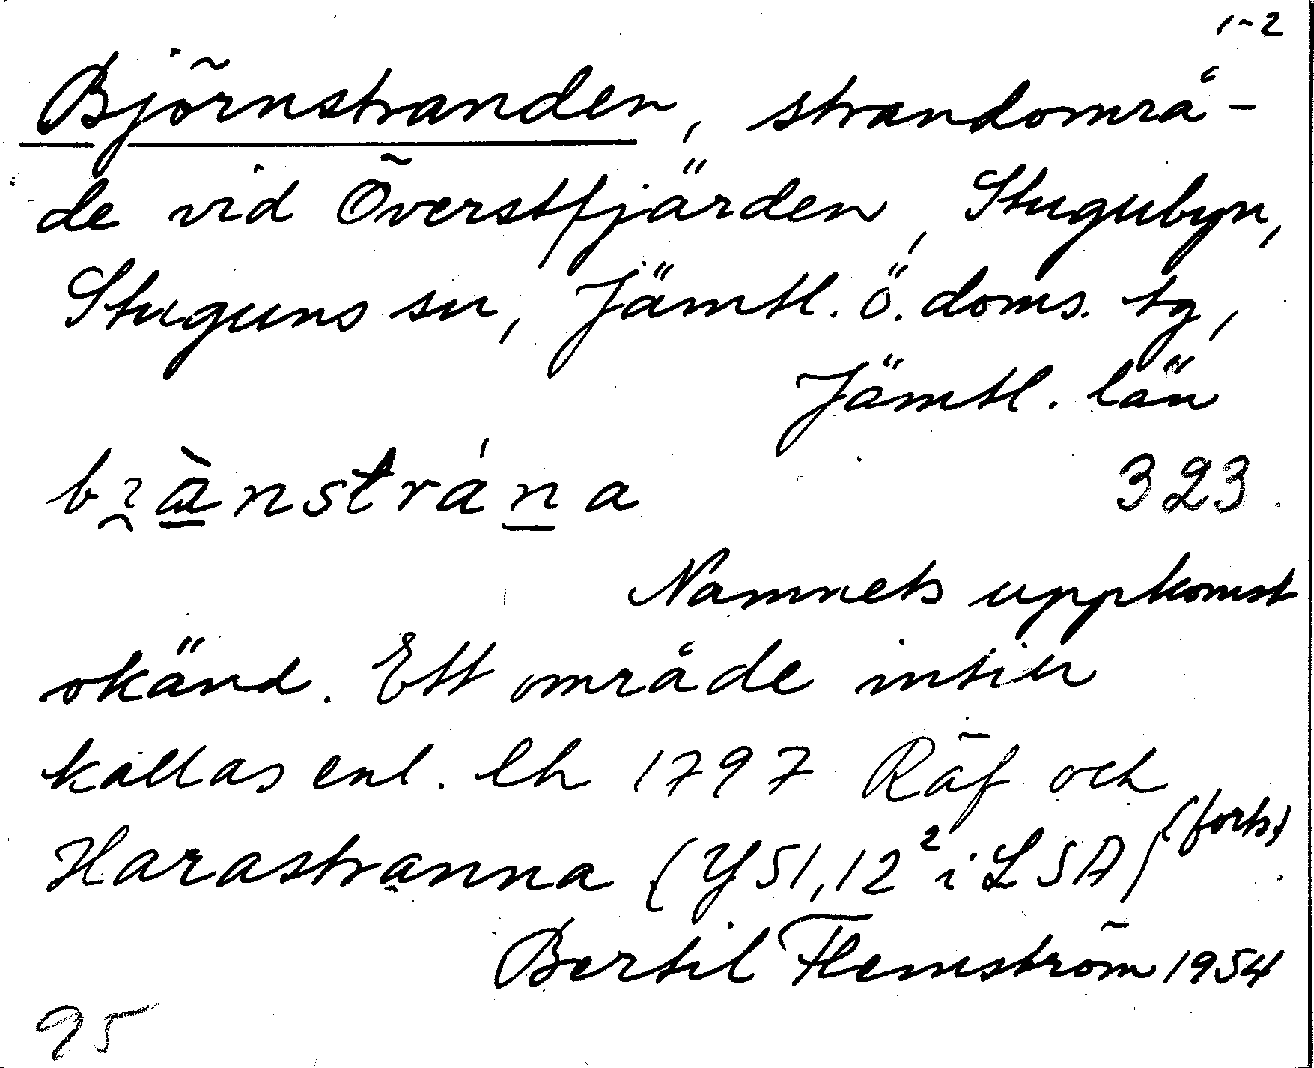 1-2
Björnstranden, strandområ-
de vid Överstfjärden, Stugubyn,
Stuguns sn, Jämtl. ö. doms. tg,
Jämtl. län
323.
Namnets uppkomst
okänd. Ett område intill
kallas enl. lh 1797 Räf och
Harastranna (Y51,12² i LSA) (forts)
Bertil Flemström 1954
95